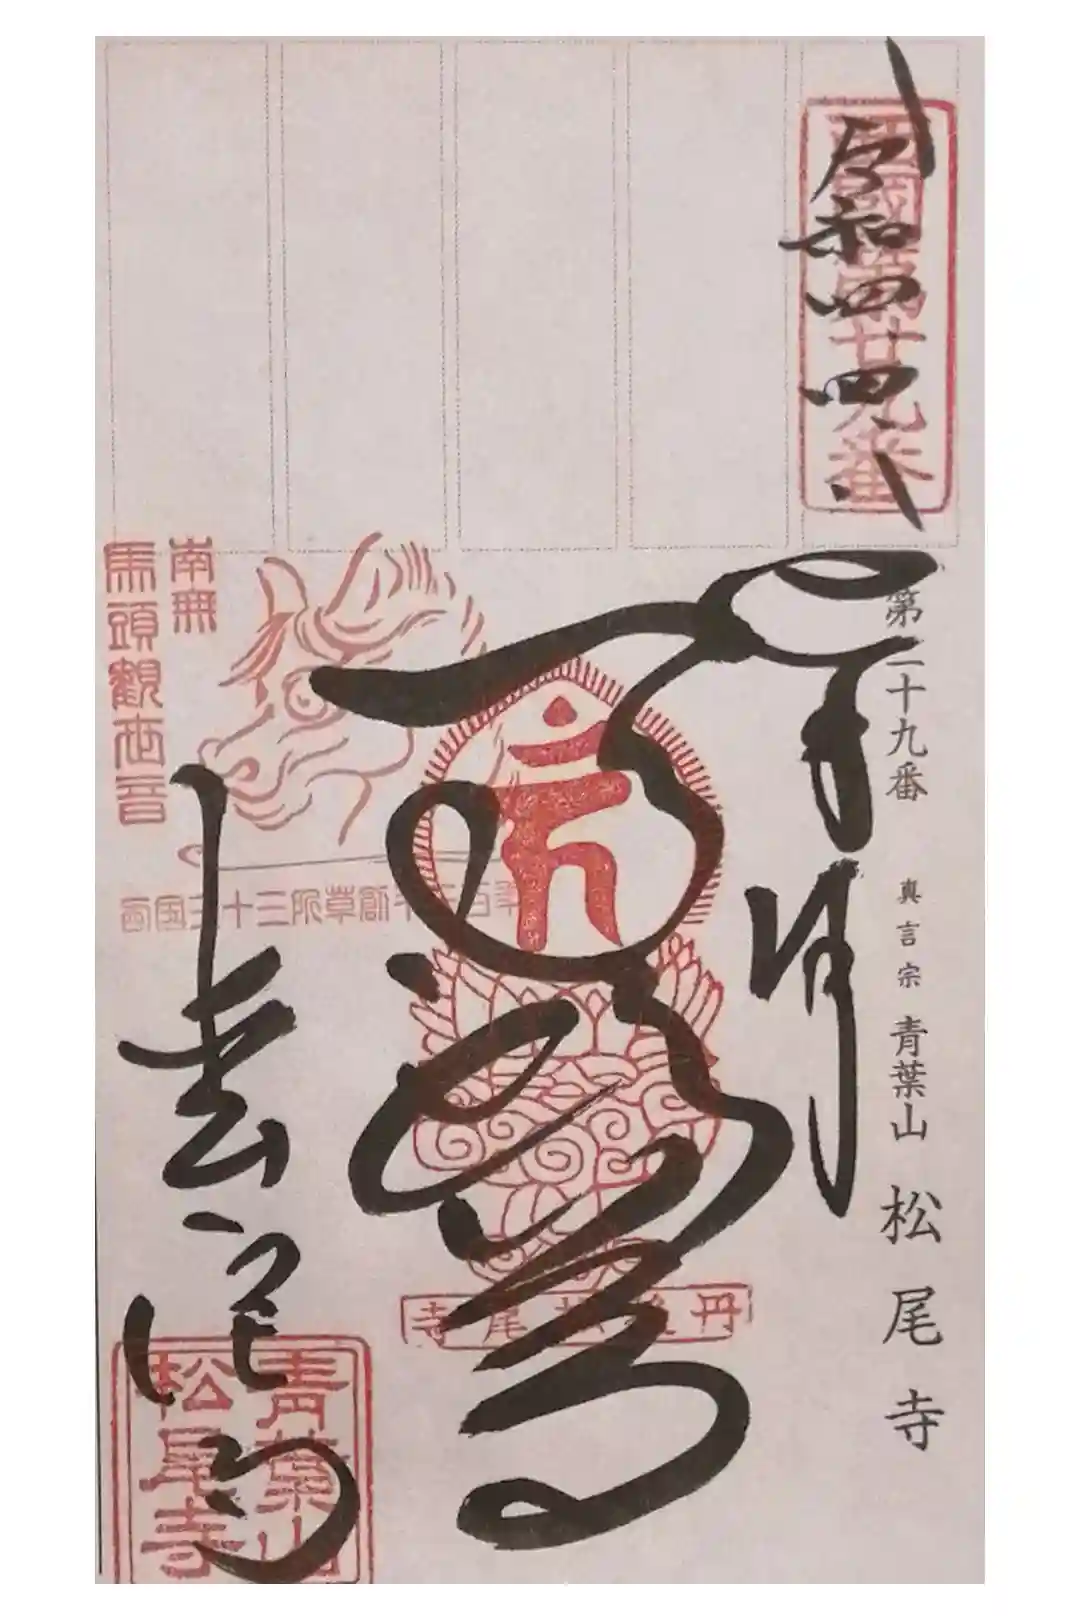 西國第廿九番
令和四、四、八
第二十九番 真言宗 青葉山 松尾寺
奉拝
丹後松尾寺
南無
馬頭觀世音
西国三十三所草創千三百年
青葉山
松尾寺